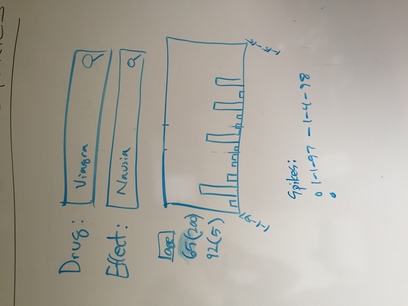 Drug: Viagra
Effect: Nausia
age
65(200)
92(5)
1-1-97
Spikes:
1-1-97 - 1-4-98